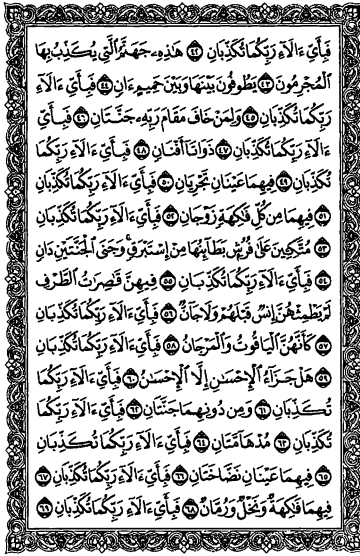 فَبِأَيِّ ءَالَآءِ رَبِّكُمَا تُكَذِّبَانِ ٤٢ هَٰذِهِۦ جَهَنَّمُ ٱلَّتِي يُكَذِّبُ بِهَا
ٱلْمُجْرِمُونَ ٤٣ يَطُوفُونَ بَيْنَهَا وَبَيْنَ حَمِيمٍ ءَانٍ ٤٤ فَبِأَيِّ ءَالَآءِ
رَبِّكُمَا تُكَذِّبَانِ ٤٥ وَلِمَنْ خَافَ مَقَامَ رَبِّهِۦ جَنَّتَانِ ٤٦ فَبِأَيِّ
ءَالَآءِ رَبِّكُمَا تُكَذِّبَانِ ٤٧ ذَوَاتَآ أَفْنَانٍ ٤٨ فَبِأَيِّ ءَالَآءِ رَبِّكُمَا
تُكَذِّبَانِ ٤٩ فِيهِمَا عَيْنَانِ تَجْرِيَانِ ٥٠ فَبِأَيِّ ءَالَآءِ رَبِّكُمَا تُكَذِّبَانِ
٥١ فِيهِمَا مِن كُلِّ فَٰكِهَةٍ زَوْجَانِ ٥٢ فَبِأَيِّ ءَالَآءِ رَبِّكُمَا تُكَذِّبَانِ
٥٣ مُتَّكِـِٔينَ عَلَىٰ فُرُشٍۭ بَطَآئِنُهَا مِنْ إِسْتَبْرَقٍ ۚ وَجَنَى ٱلْجَنَّتَيْنِ دَانٍ
٥٤ فَبِأَيِّ ءَالَآءِ رَبِّكُمَا تُكَذِّبَانِ ٥٥ فِيهِنَّ قَٰصِرَٰتُ ٱلطَّرْفِ
لَمْ يَطْمِثْهُنَّ إِنسٌ قَبْلَهُمْ وَلَا جَآنٌّ ٥٦ فَبِأَيِّ ءَالَآءِ رَبِّكُمَا تُكَذِّبَانِ
٥٧ كَأَنَّهُنَّ ٱلْيَاقُوتُ وَٱلْمَرْجَانُ ٥٨ فَبِأَيِّ ءَالَآءِ رَبِّكُمَا تُكَذِّبَانِ
٥٩ هَلْ جَزَآءُ ٱلْإِحْسَٰنِ إِلَّا ٱلْإِحْسَٰنُ ٦٠ فَبِأَيِّ ءَالَآءِ رَبِّكُمَا
تُكَذِّبَانِ ٦١ وَمِن دُونِهِمَا جَنَّتَانِ ٦٢ فَبِأَيِّ ءَالَآءِ رَبِّكُمَا
تُكَذِّبَانِ ٦٣ مُدْهَآمَّتَانِ ٦٤ فَبِأَيِّ ءَالَآءِ رَبِّكُمَا تُكَذِّبَانِ
٦٥ فِيهِمَا عَيْنَانِ نَضَّاخَتَانِ ٦٦ فَبِأَيِّ ءَالَآءِ رَبِّكُمَا تُكَذِّبَانِ ٦٧
فِيهِمَا فَٰكِهَةٌ وَنَخْلٌ وَرُمَّانٌ ٦٨ فَبِأَيِّ ءَالَآءِ رَبِّكُمَا تُكَذِّبَانِ ٦٩